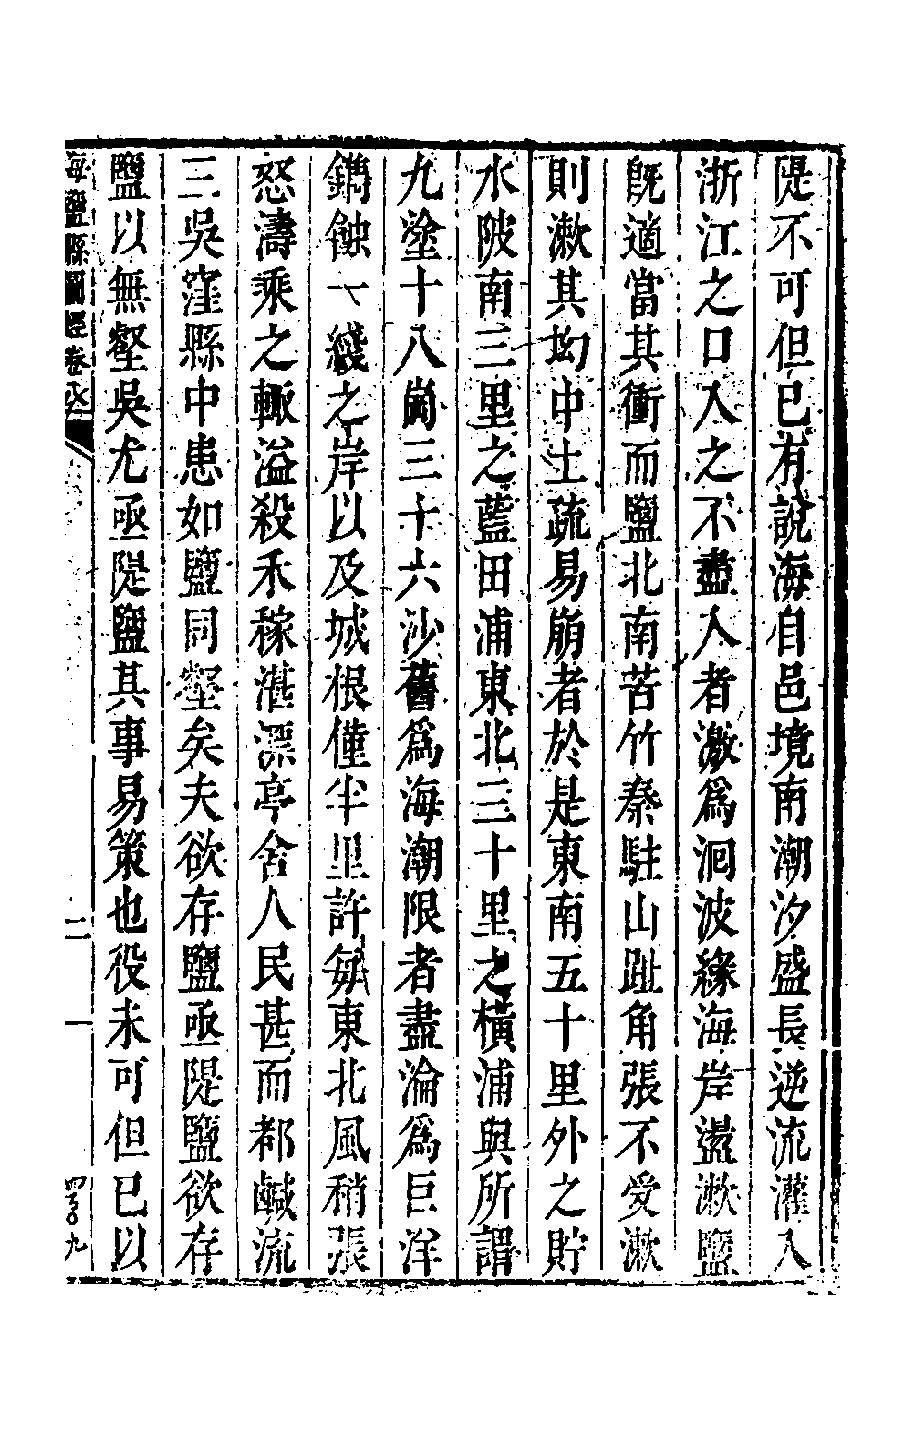 隄不可但已有說海自邑境南潮汐盛長逆流灌入
浙江之口入之不盡入者激爲洄波緣海岸盪漱鹽
旣適當其衝而鹽北南苦竹秦駐山趾角張不受漱
則漱其坳中土疏易崩者於是東南五十里外之貯
水陂南三里之藍田浦東北三十里之橫浦與所謂
九塗十八崗三十六沙舊爲海潮限者盡淪爲巨洋
鐫蝕一綫之岸以及城根僅半里許每東北風稍張
怒濤乘之輒溢殺禾稼湛漂亭舍人民甚而都鹹流
三吳窪縣中患如鹽同壑矣夫欲存鹽亟隄鹽欲存
鹽以無壑吳尤亟隄鹽其事易策也役未可但已以
海鹽縣圖經卷八